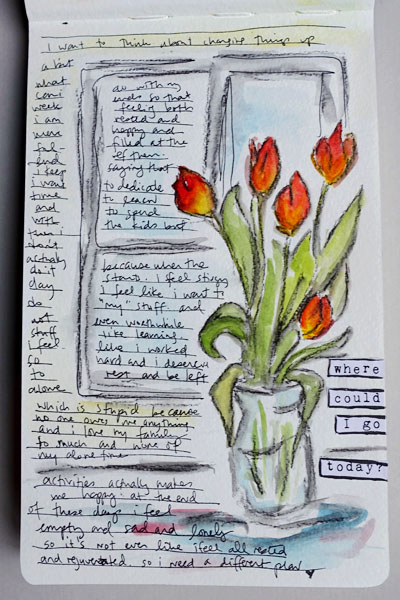 I want to think about changing things up
a bit
what
can i
week
i am
more
ful-
i keep
i want
time
and
with
then i
don't
actually
do it
day
do
not
stuff
i feel
so
to
alone
do with my
ends so that
feeling both
rested and
happy and
filled at the
of them.
saying that
to dedicate
to learn
to spend
the kids but
because when the
i feel stingy
I feel like i want to
"my" stuff. and
even worthwhile
like learning.
like i worked
hard and i deserve
rest and be left
which is stupid because
no one owes me anything
and i love my family
to much and none of
my alone time
activities actually makes
me happy at the end
of these days i feel
empty and sad and lonely
so it's not even like i feel all rested
and rejuvenated. so i need a different plan
where
could
I go
today?